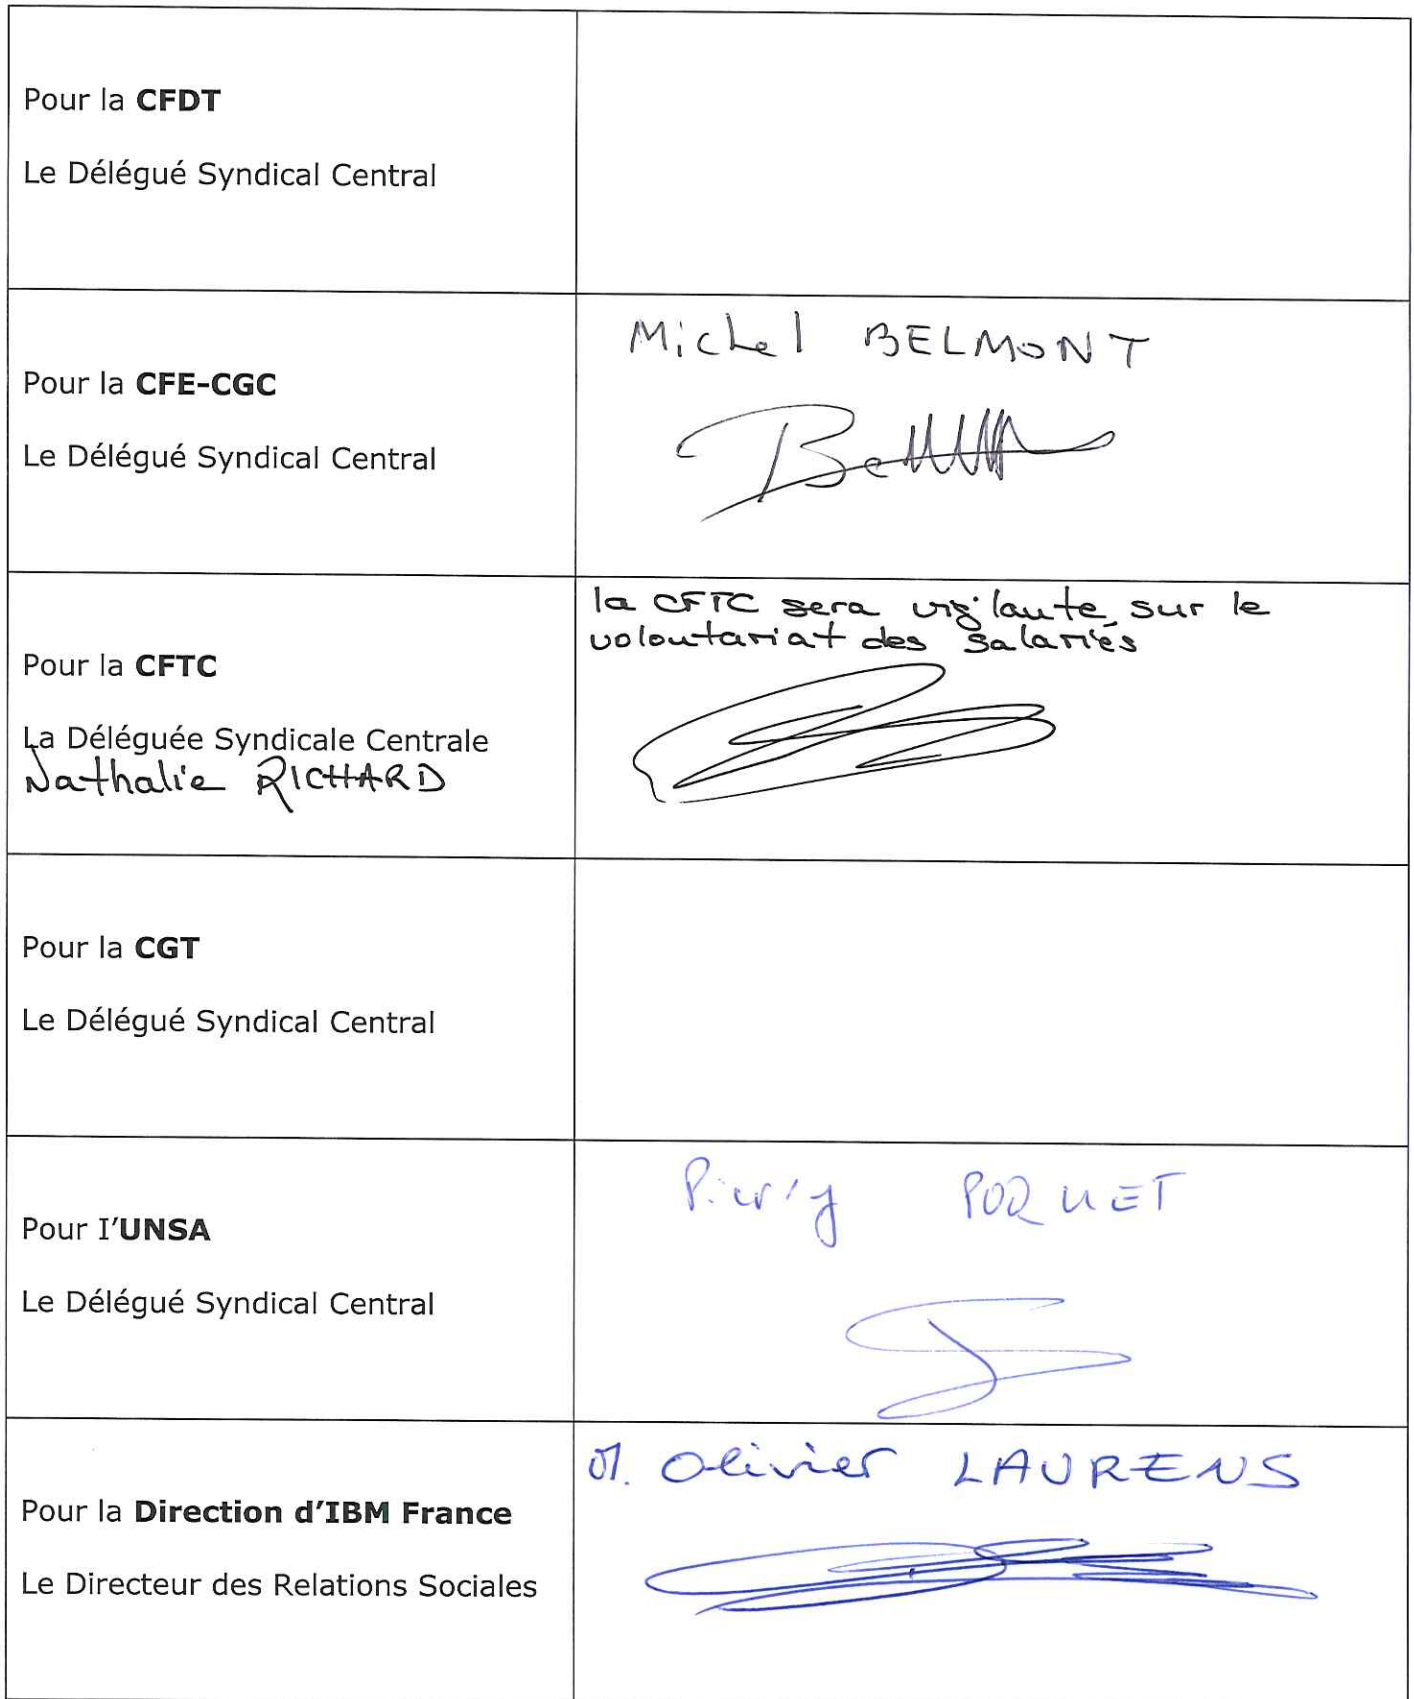 Pour la CFDT
Le Délégué Syndical Central
Pour la CFE-CGC
Le Délégué Syndical Central
Michel BELMONT
Pour la CFTC
La Déléguée Syndicale Centrale
Nathalie RICHARD
la CFTC sera vigilante sur le
volontariat des salariés
Pour la CGT
Le Délégué Syndical Central
Pour l'UNSA
Le Délégué Syndical Central
POQUET
Pour la Direction d'IBM France
Le Directeur des Relations Sociales
M. Olivier LAURENS